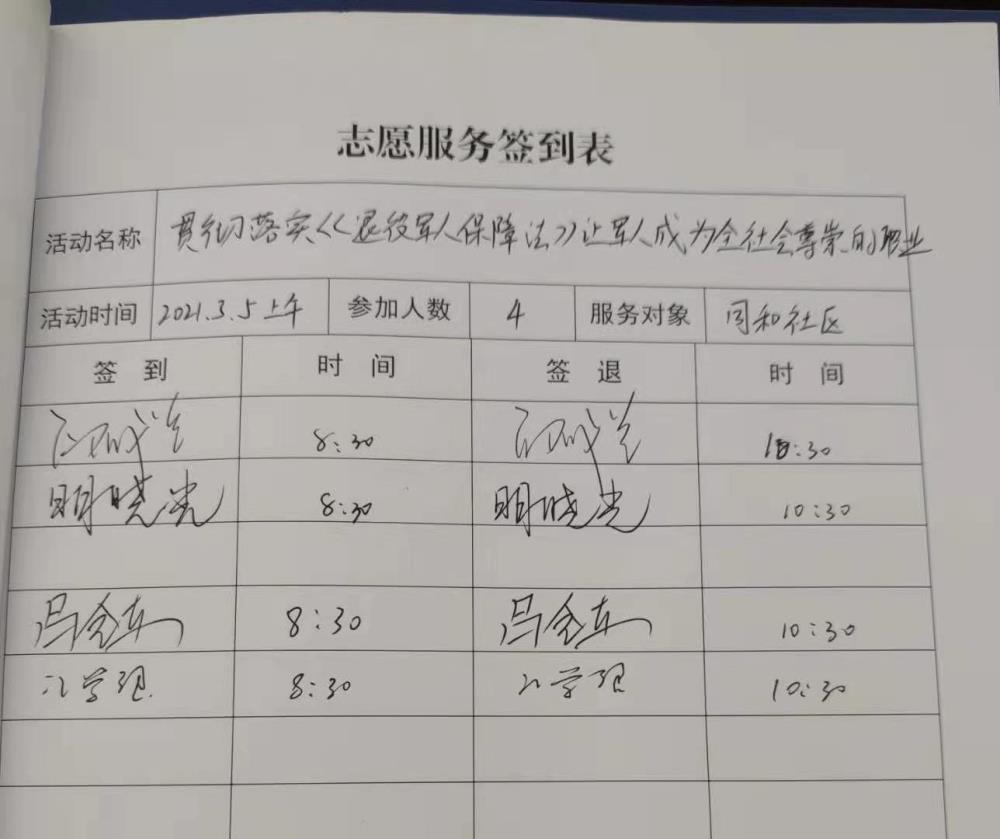 志愿服务签到表
活动名称 贯彻落实《退役军人保障法》让军人成为全社会尊崇的职业
活动时间 2021.3.5上午 参加人数 4 服务对象 同和社区
签到 时间 签退 时间
8:30 10:30
明晓光 8:30 明晓光 10:30
冯全东 8:30 冯全东 10:30
8:30 10:30